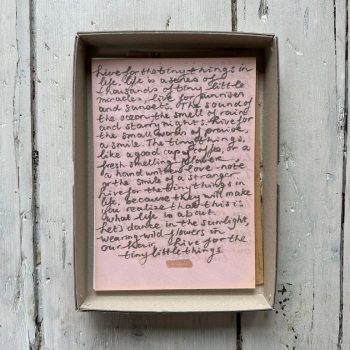 Live for the tiny things in
life, life is a series of
thousands of tiny little
miracles, live for sunrises
and sunsets. The sound of
the ocean, the smell of rain
and starry nights. Live for
the small words of praise,
a smile. The tiny things,
like a good cup of coffee, or a
fresh smelling flower
a hand written love note
or the smile of a stranger
Live for the tiny things in
life, because they will make
you realize that this is
what life is about.
Let's dance in the sunlight,
wearing wild flowers in
our hair. Live for the
tiny little things